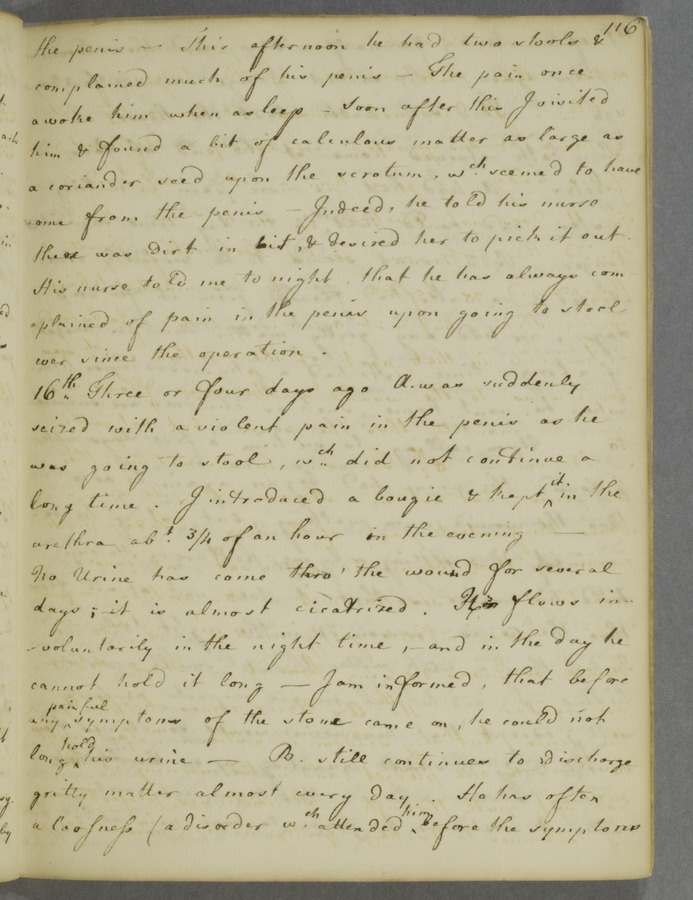 116
the penis — This afternoon he had two stools &
complained much of his penis — The pain once
awoke him when asleep — Soon after this I visited
him & found a bit of calculous matter as large as
a coriander seed upon the scrotum, wch seemed to have
come from the penis — Indeed, he told his nurse
there was Dirt in it, & desired her to pick it out.
His nurse told me to night, that he has always com
-plained of pain in the penis upon going to stool
ever since the operation.
16th. Three or four days ago A. was suddenly
seized with a violent pain in the penis as he
was going to stool, wch did not continue a
long time. I introduced a bougie & kept it in the
urethra abt. 3/4 of an hour in the evening —
No Urine has come thro' the wound for several
days; it is almost cicatrised. It flows in-
-voluntarily in the night time, and in the day he
cannot hold it long — I am informed, that before
any painful symptoms of the stone came on, he could not
long hold his urine — B. still continues to discharge
gritty matter almost every day. He has often
a looseness (a disorder wch attended him before the symptoms